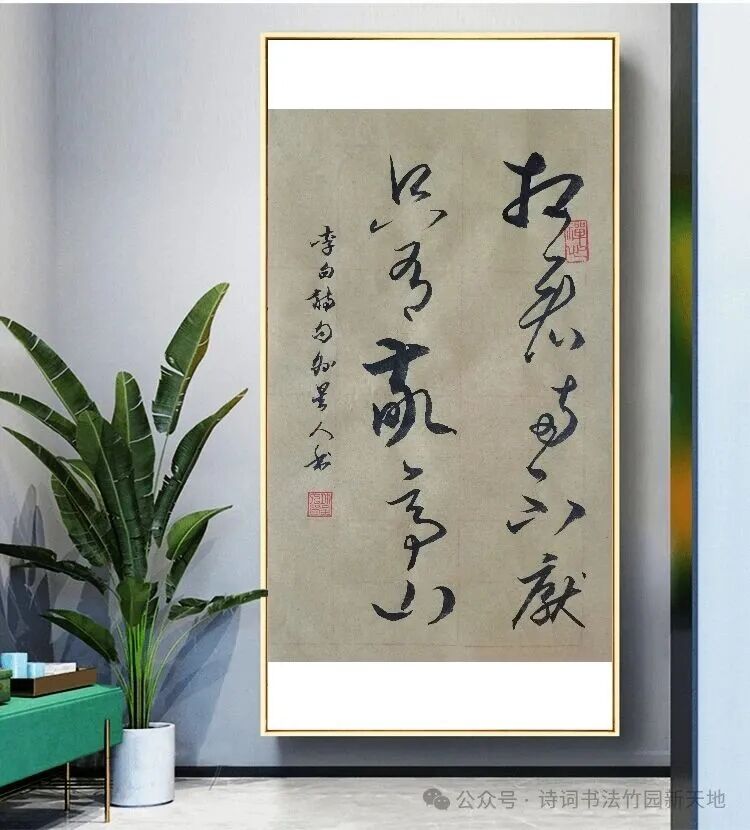 相看两不厭
只有敬亭山
李白詩句
公众号 · 诗词书法竹园新天地